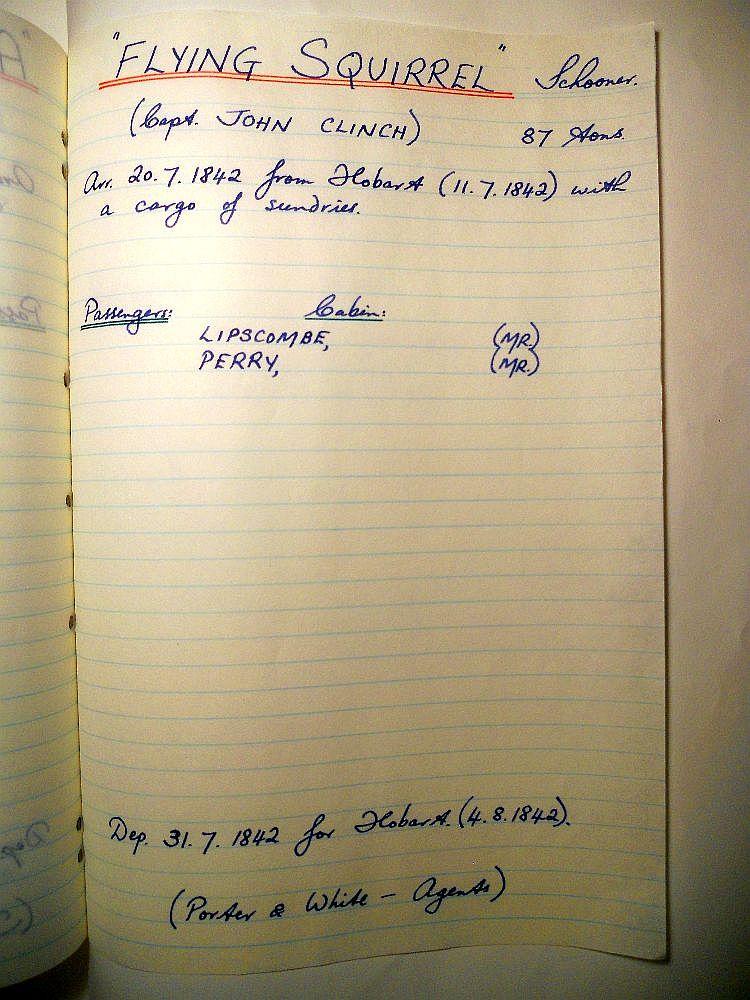 "FLYING SQUIRREL" Schooner.
(Capt. JOHN CLINCH) 87 tons.
Arr. 20.7.1842 from Hobart (11.7.1842) with
a cargo of sundries.
Passengers: Cabin:
LIPSCOMBE, (MR.)
PERRY, (MR.)
Dep. 31.7.1842 for Hobart. (4.8.1842).
(Porter & White - Agents)